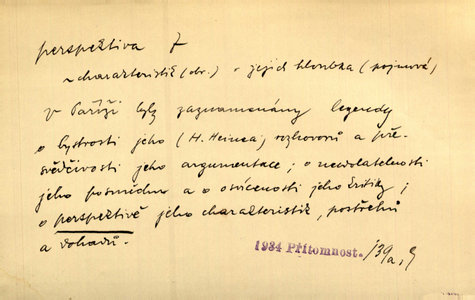 perspektiva f
~ charakteristik (obr.) - jejich hloubka (pojmová)
V Paříži byly zaznamenány legendy
o bystrosti jeho (H. Heinea) rozhovorů a pře-
svědčivosti jeho argumentace; o neodolatelnosti
jeho posměchu a o osvícenosti jeho kritiky;
o perspektivě jeho charakteristik, postřehů
a dohadů.
1934 Přítomnost. /39a,9